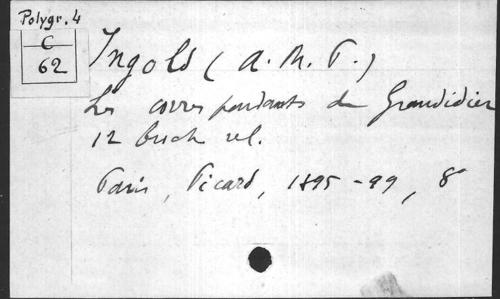 Polygr. 4
C
62
Ingold (A. M. P.)
Les correspondants de Grandidier
12 broch rel.
Paris, Picard, 1895-99, 8°